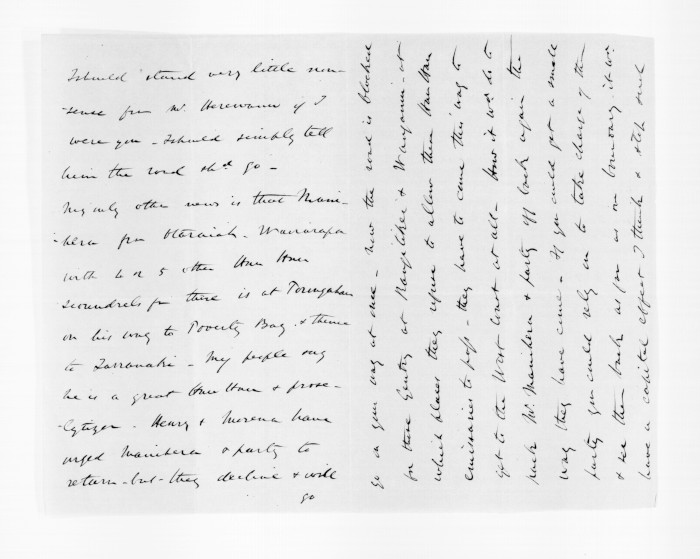 I should stand very little non-
-sense from Mr. Herewaini if I
were you - I should simply tell
him the road shd. go -
My only other news is that Mani-
-hera from Otaraiah - Wairarapa
with 4 or 5 other Hau Hau
scoundrels from there is at Porongahau
on his way to Poverty Bay & thence
to Tarranaki - My people say
he is a great Hau Hau & prose-
-lytizer - Henry & Morena have
urged Manihera & party to
return - but - they decline & will
go
go on your way at once - now the road is blocked
for these Gentry at Rangitikei & Wanganui - at
which places they refuse to allow their Hau Hau
emissaries to pass - they have to come this way to
get to the West Coast at all - How it wd. do to
pack Mr. Manihera & party off back again the
way they have come - If you could get a small
party you could rely on to take charge of them
& see them back as far as our boundary, it wd.
have a capital effect I think & stop such